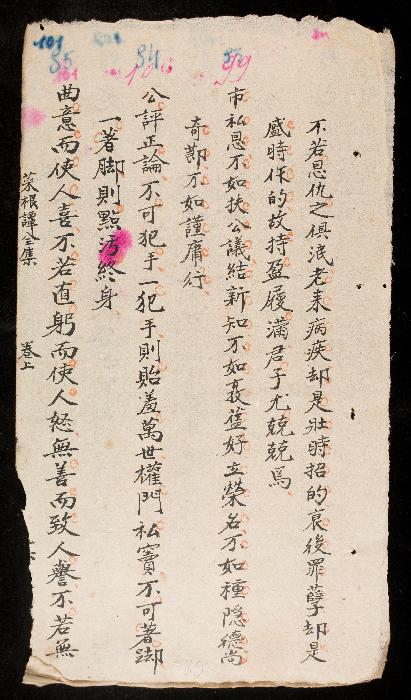 不若恩仇之俱泯老来病疾却是壮時招的衰後罪孽却是
盛時作的故持盈履滿君子尤兢兢焉
市私恩不如扶公議結新知不如敦舊好立榮名不如種隠德尚
奇節不如謹庸行
公評正論不可犯手一犯手則貽羞萬世權門私竇不可著脚
一著脚則點汚終身
曲意而使人喜不若直躬而使人怒無善而致人譽不若無
菜根譚全集 卷上
101
85
101
84
100
99